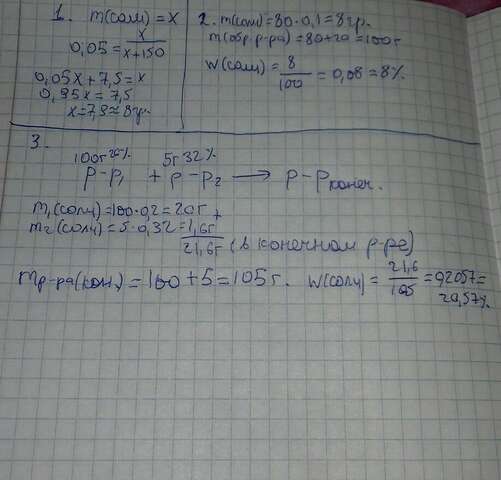 1. m(соли) = x
0,05 = x/x+150
0,05x + 7,5 = x
0,95x = 7,5
x = 7,9 ≈ 8гр.
2. m(соли) = 80 · 0,1 = 8гр.
m(обр. р-ра) = 80 + 20 = 100г
W(соли) = 8/100 = 0,08 = 8%
3.
100г 20% 5г 32%
р-р₁ + р-р₂ → р-р конеч.
m₁(соли) = 100 · 0,2 = 20г +
m₂(соли) = 5 · 0,32 = 1,6г
21,6г (в конечном р-ре)
m р-ра(кон.) = 100 + 5 = 105г. W(соли) = 21,6/105 = 0,2057 =
20,57%.